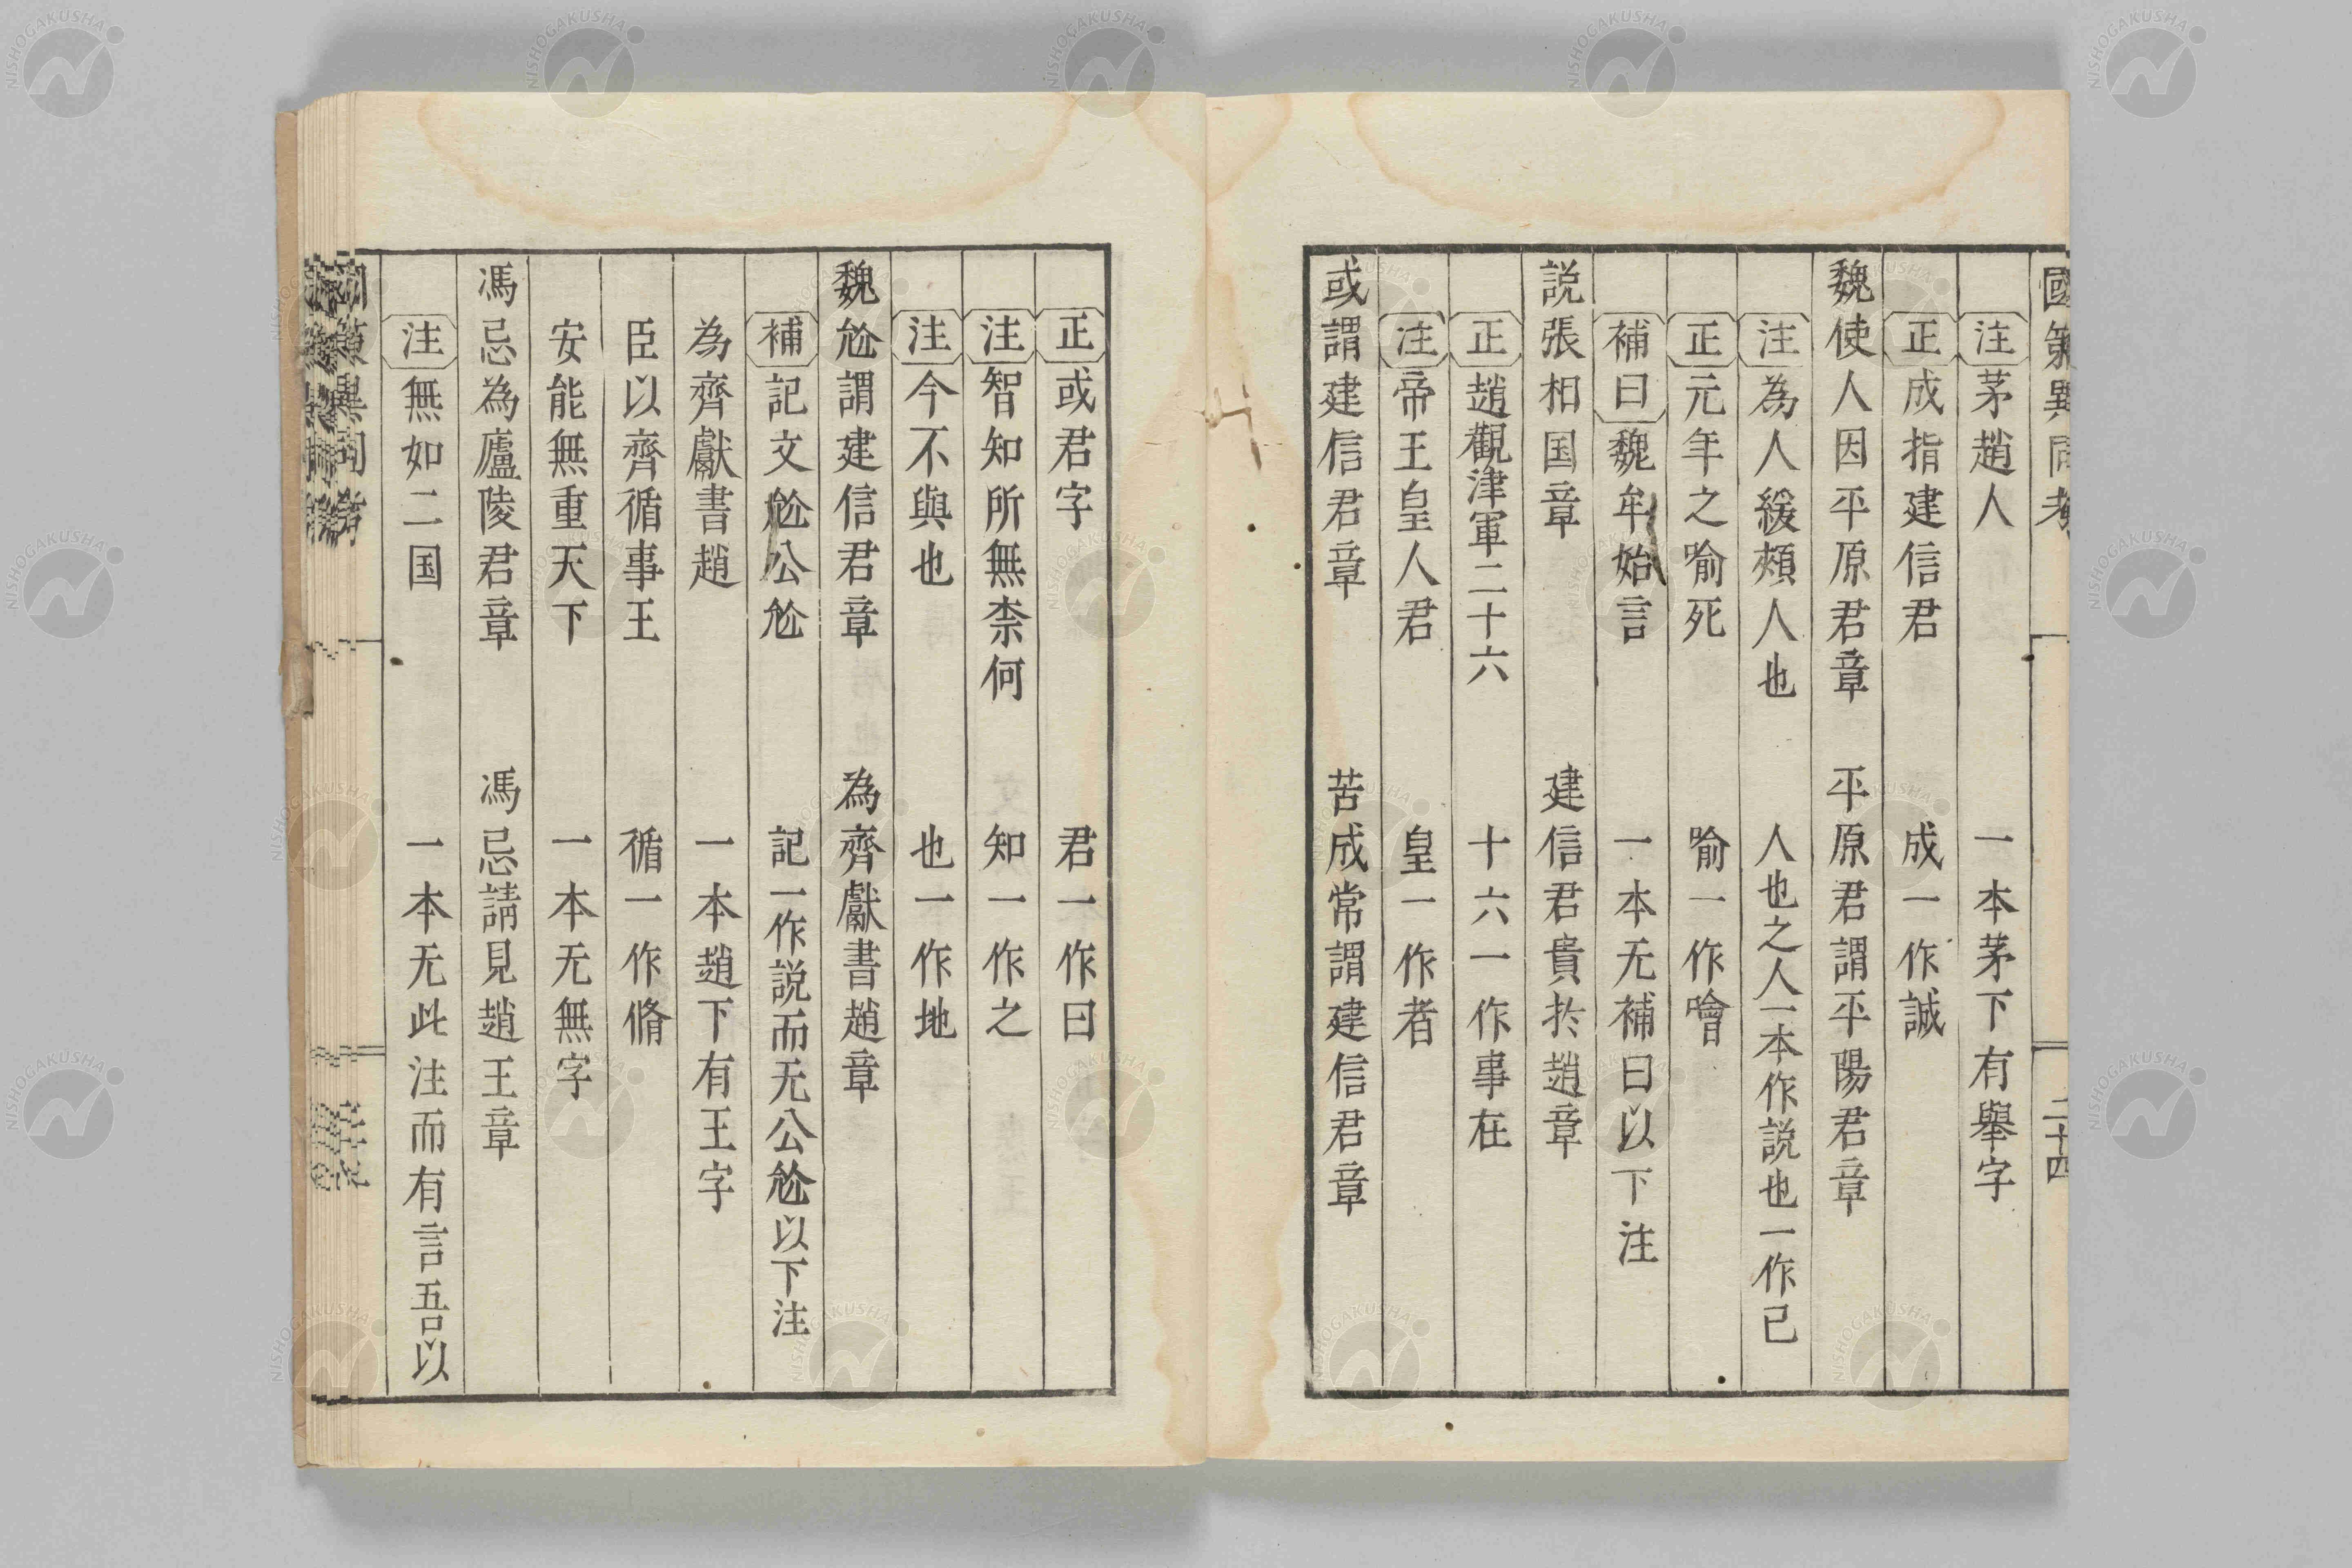 國策異同考 二十四
注茅趙人 一本茅下有舉字
正成指建信君 成一作誠
魏使人因平原君章 平原君謂平陽君章
注為人緩頰人也 人也之人一本作説也一作已
正元年之喻死 喻一作噲
補曰魏牟始言 一本无補曰以下注
説張相国章 建信君貴於趙章
正趙觀津軍二十六 十六一作事在
注帝王皇人君 皇一作者
或謂建信君章 苦成常謂建信君章
正或君字 君一作曰
注智知所無柰何 知一作之
注今不與也 也一作地
魏尬謂建信君章 為齊獻書趙章
補記文尬公尬 記一作説而无公尬以下注
為齊獻書趙 一本趙下有王字
臣以齊循事王 循一作脩
安能無重天下 一本无無字
馮忌為廬陵君章 馮忌請見趙王章
注無如二国 一本无此注而有言吾以
NISHOGAKUSHA